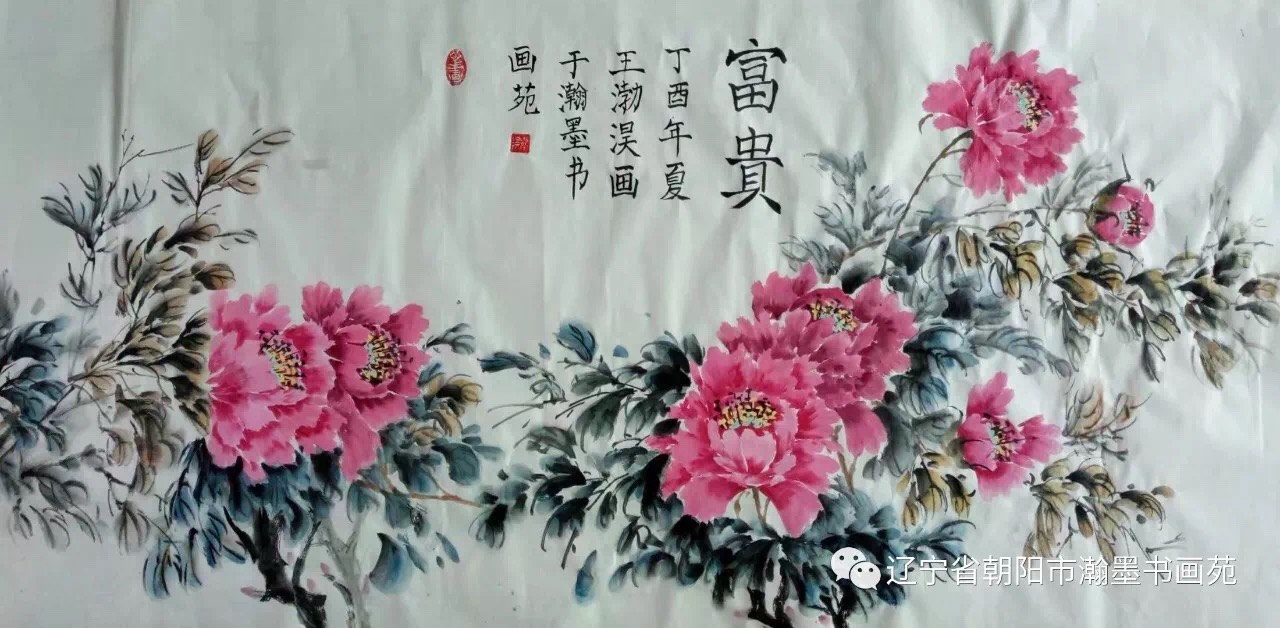 富貴
丁酉年夏
王渤淏画
于瀚墨书
画苑
辽宁省朝阳市瀚墨书画苑